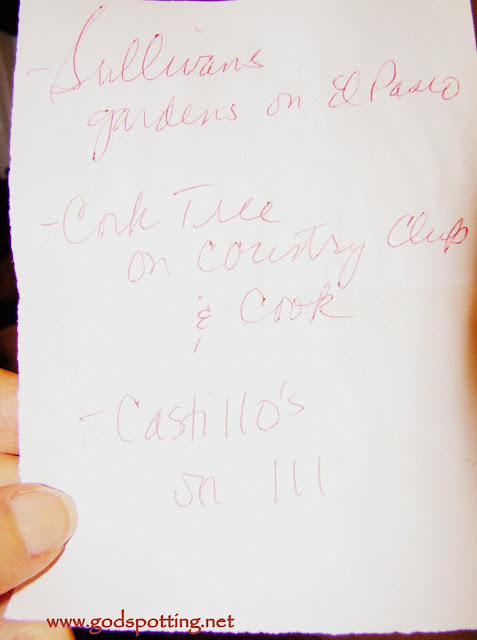 - Sullivans
gardens on El Paseo
- Cork Tree
on Country Club
& Cook
- Castillo's
on 111
www.godspotting.net